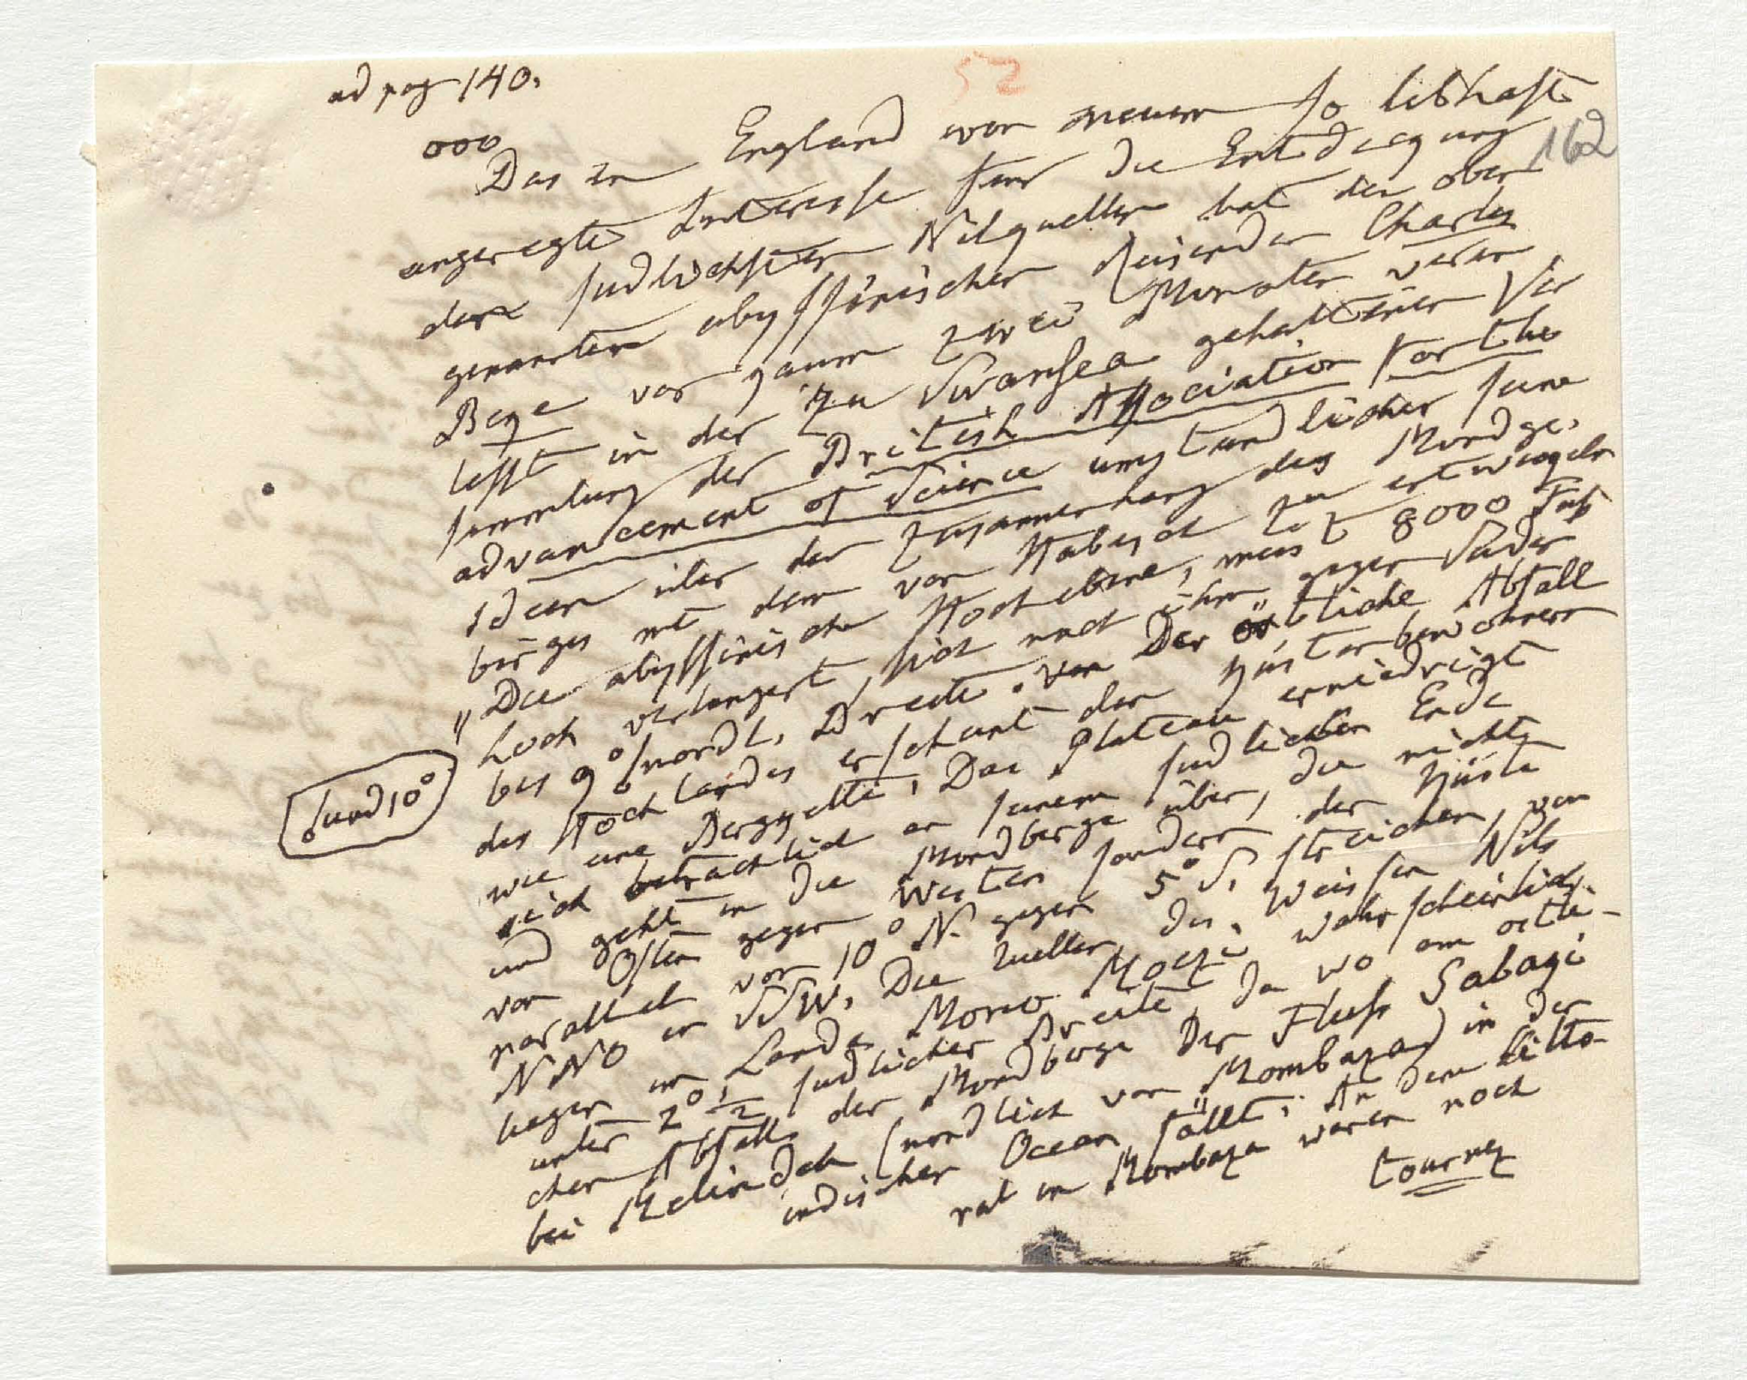 ad pag 140.
52
162
ooo
Das in England von neuem so lebhaft
angeregte Interesse für die Entdeckung
der südlichsten Nilquellen hat den oben
genannten abyssinischen Reisenden Charles
Beke vor kaum zwei Monaten veran
lasst in der zu Swansea gehaltenen Ver
sammlung der British Association for the
advancement of Science umständlicher seine
Ideen über den Zusammenhang des Mondge-
birges mit dem von Habesch zu entwickeln
„Die abyssinische Hochebene, meist 8000 Fuß
hoch verlängert sich nach ihm gegen Süden
bis 9° nördl. Breite. Von Der östliche Abfall
6 und 10°
des Hochlandes erscheint den Küstenbewohnern
wie eine Bergkette. Das Plateau erniedrigt
sich beträchtlich an seinem südlichen Ende
und geht in die Mondberge über, die nicht
von Osten gegen Westen sondern der Küste
parallel von 10° N. gegen 5° S. streichen, von
NNO in SSW. Die Quellen des Weissen Nils
liegen im Lande Mono Moezi wahrscheinlich
unter 2° ½ südlicher Breite, da wo am östli-
chen Abfall der Mondberge der Fluss Sabagi
bei Melindeh (nördlich von Mombaza) in den
indischen Ocean fällt. An dem litto-
ral in Mombaza waren noch
tournez